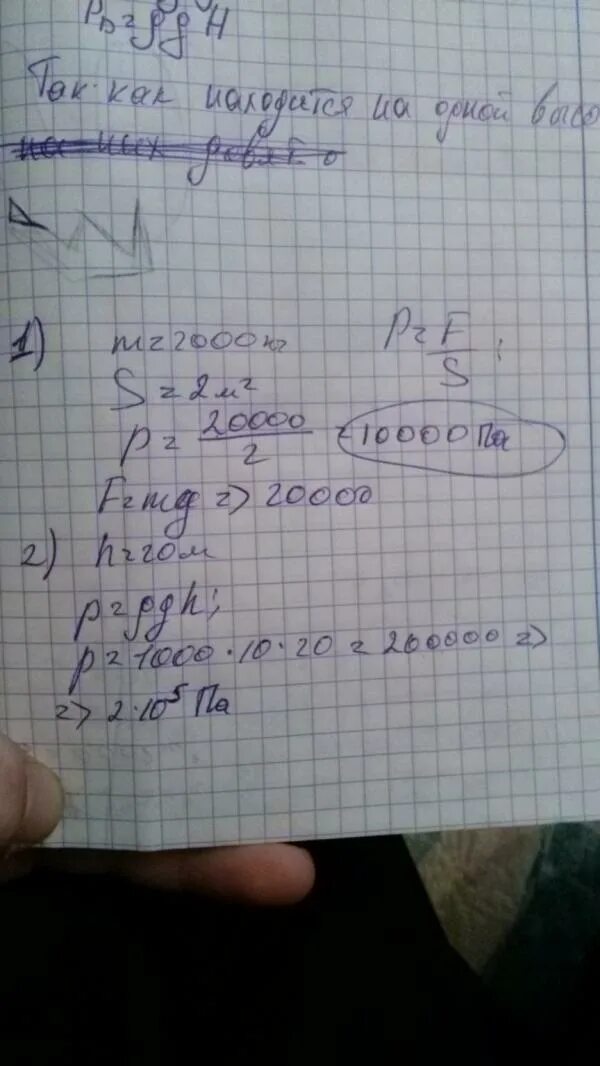 P = ρgH
Так как находится на одной высо
1) m = 2000 кг P = F/S;
S = 2 м²
P = 20000/2 = 10000 Па
F = mg => 20000
2) h = 20 м
p = ρgh;
p = 1000 · 10 · 20 = 200000 =>
=> 2 · 10⁵ Па